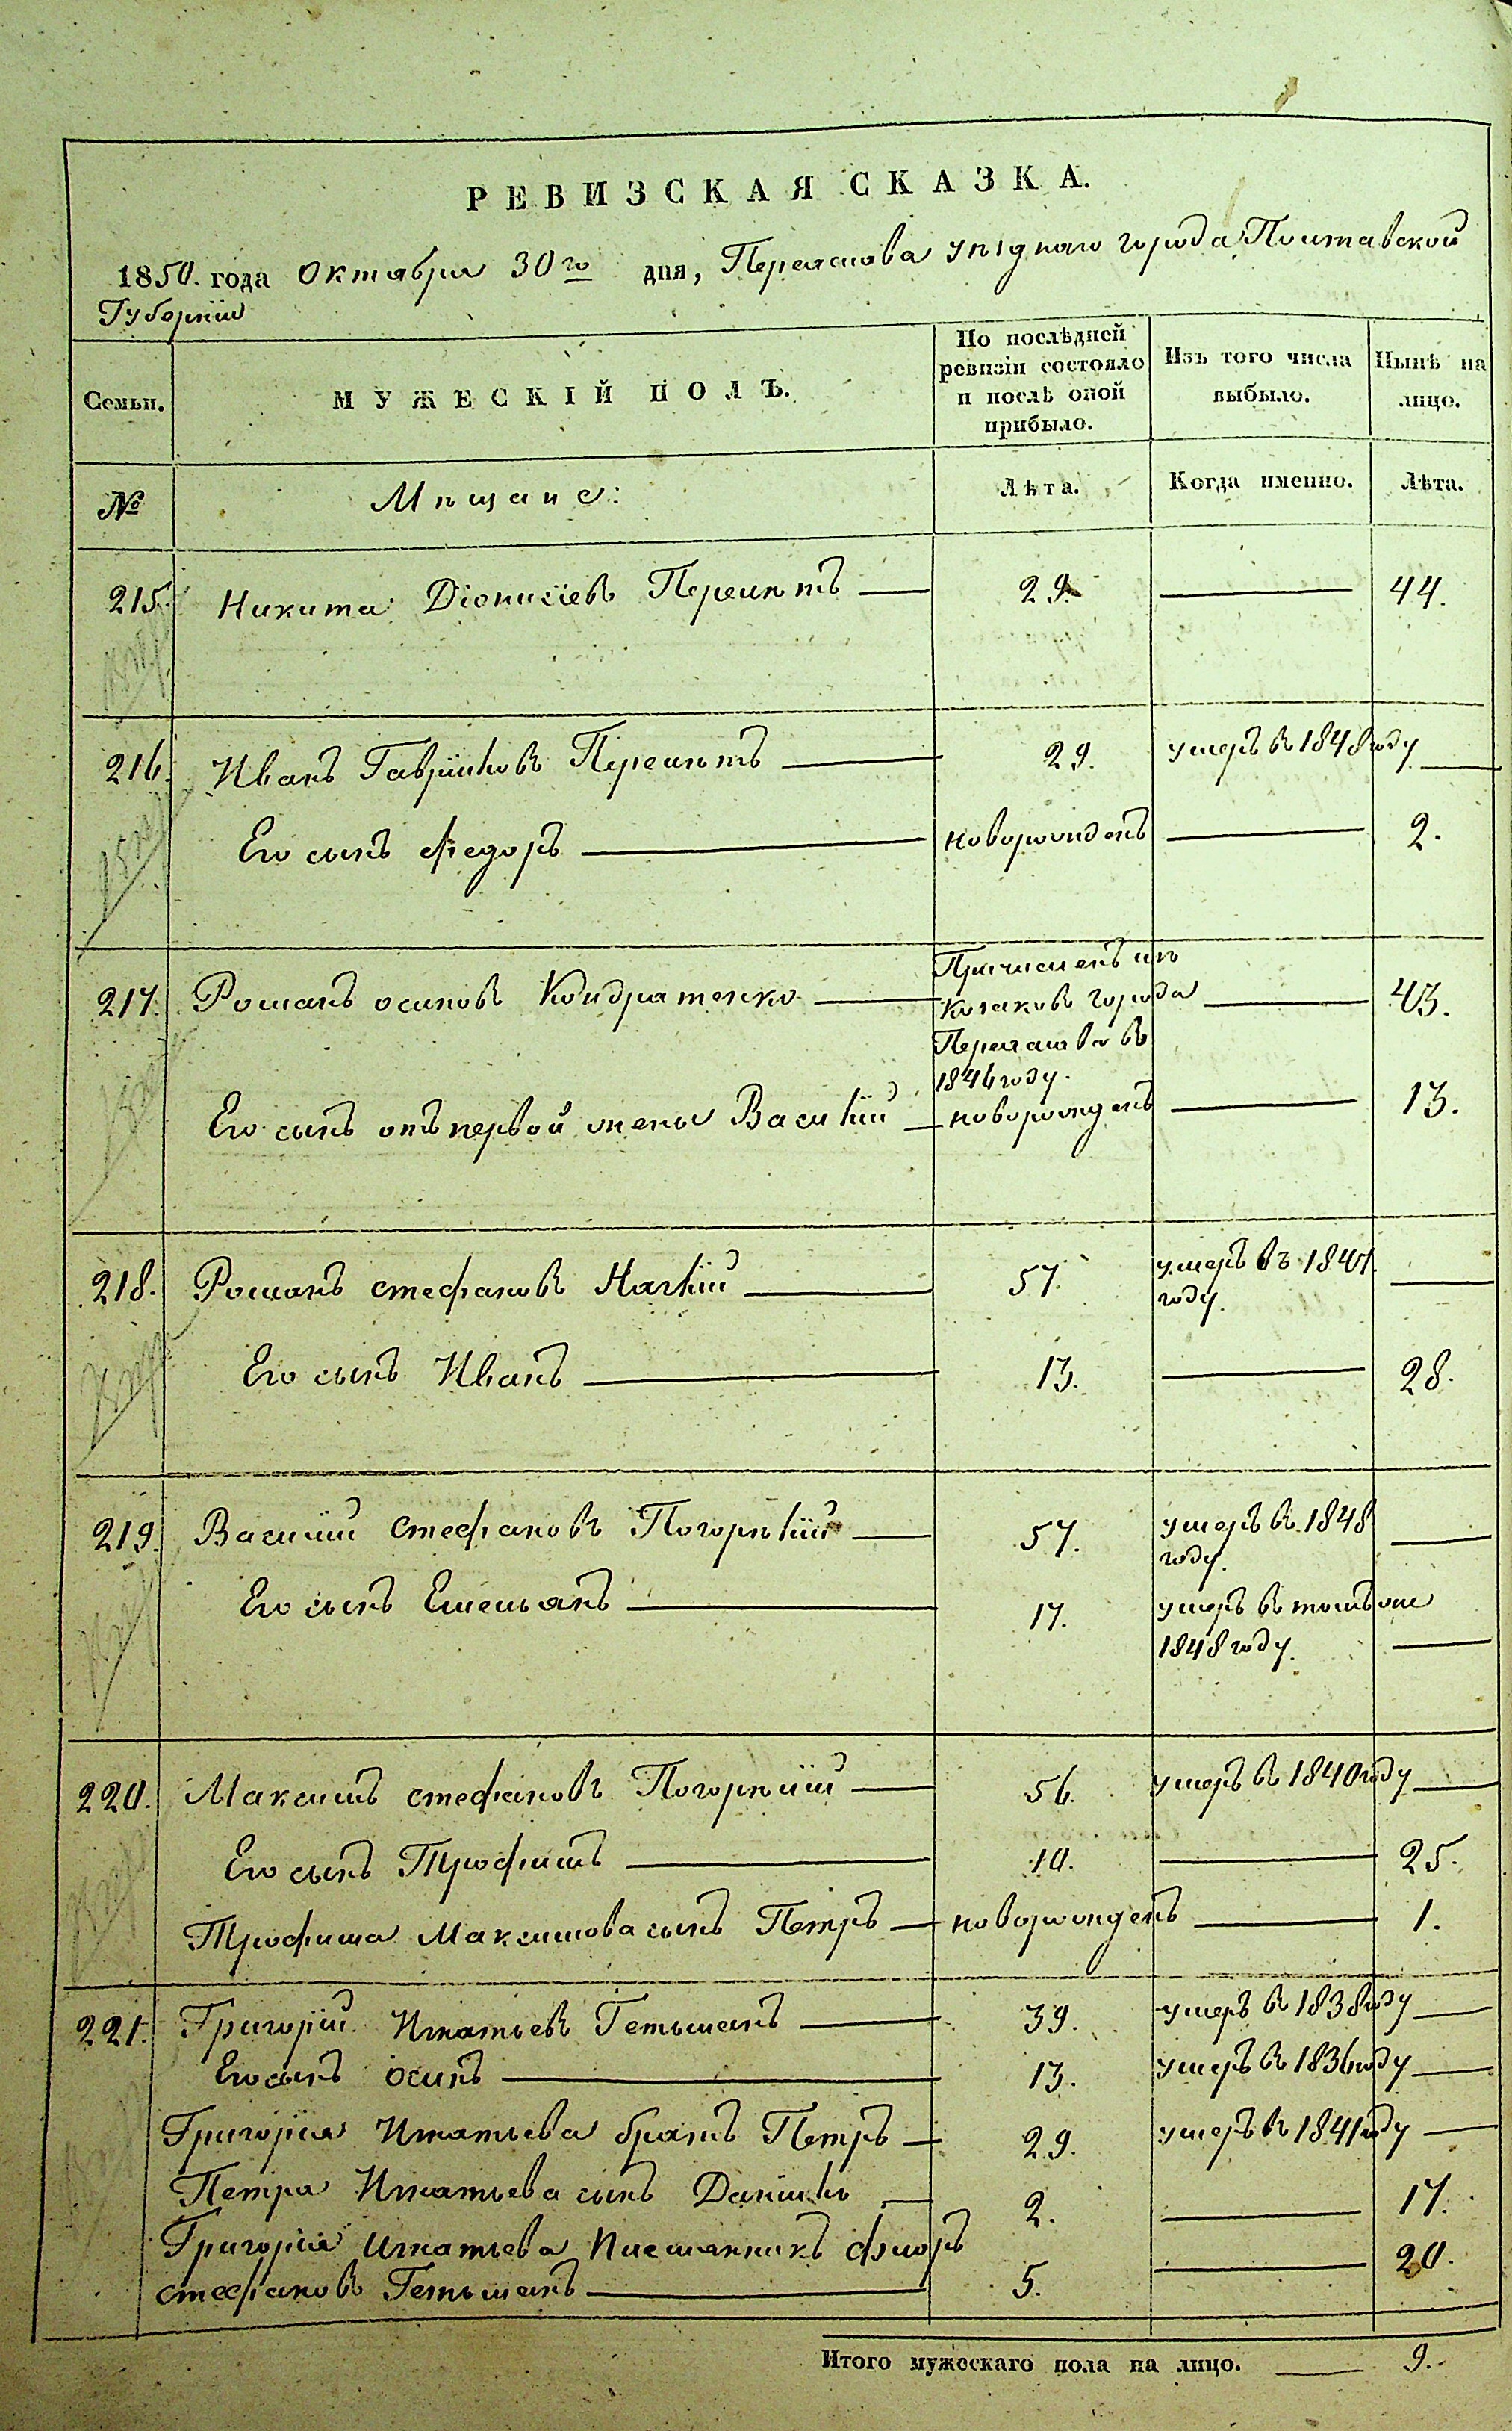 РЕВИЗСКАЯ СКАЗКА.
1850. года Октября 30го дня, Переяслова уѣзднаго города Полтавской
Губерніи
Семьи. МУЖЕСКІЙ ПОЛЪ. По послѣдней ревизіи состояло и послѣ оной прибыло. Изъ того числа выбыло. Нынѣ на лицо.
№ Мѣщане: Лѣта. Когда именно. Лѣта.
215. Никита Діонисіевъ Перешлѣтъ 29. 44.
216. Иванъ Гавріиловъ Перешлѣтъ 29. умеръ в 1848 году
Его сынъ Федоръ новорожденъ 2.
217. Романъ осиповъ Кондратенко Причисленъ изъ козаковъ города Переяслова въ 1846 году. 43.
Его сынъ отъ первой жены Василій новорожденъ 13.
218. Романъ стефановъ 57. умеръ въ 1847 году.
Его сынъ Иванъ 13. 28.
219. Василій стефановъ Погорѣлій 57. умеръ въ 1848 году.
Его сынъ Емельянъ 17. умеръ въ томъ же 1848 году.
220. Максимъ стефановъ Погорѣлій 56. умеръ въ 1840 году
Его сынъ Трофимъ 10. 25.
Трофима Максимова сынъ Петръ новорожденъ 1.
221. Григорій Игнатьевъ Гетьманъ 39. умеръ в 1838 году
Его сынъ осипъ 13. умеръ в 1836 году
Григорія Игнатьева братъ Петръ 29. умеръ въ 1841 году
Петра Игнатьева сынъ Даніилъ 2. 17.
Григорія Игнатьева племянникъ флоръ
стефановъ Гетьманъ 5. 20.
Итого мужескаго пола на лицо. 9.